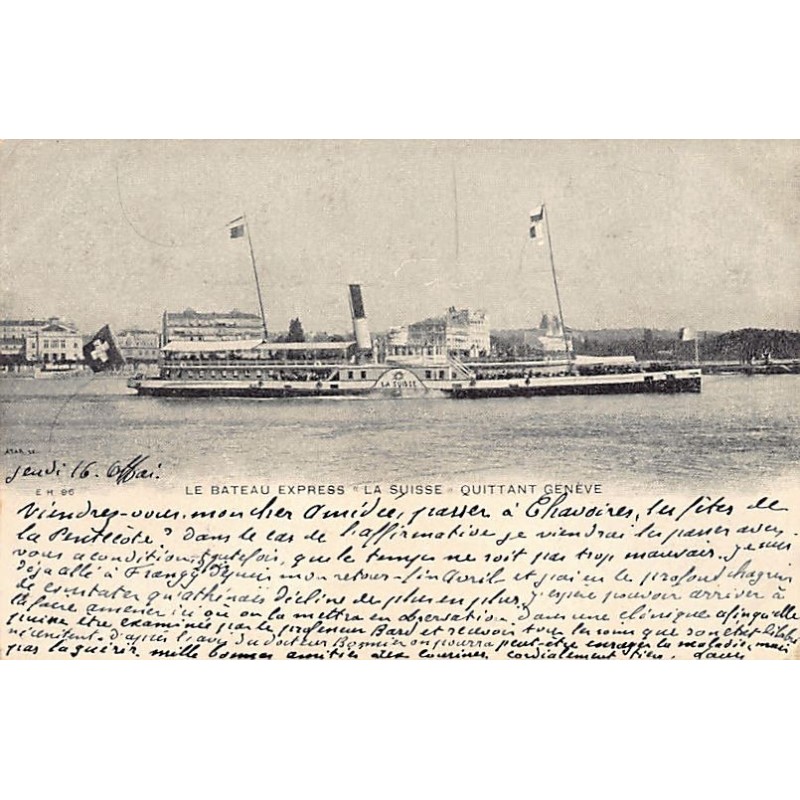 LA SUISSE
jeudi 16. Mai.
E H 96
LE BATEAU EXPRESS "LA SUISSE" QUITTANT GENÈVE
Viendrez-vous, mon cher Amédée, passer à Chavoires, les fêtes de
la Pentecôte? Dans le cas de l'affirmative je viendrai les passer avec
vous à condition, toutefois, que le temps ne soit pas trop mauvais. Je suis
déjà allé à Frangy depuis mon retour fin Avril et j'ai eu le profond chagrin
de constater qu'Athénaïs décline de plus en plus. J'espère pouvoir arriver à
la faire amener ici où on la mettra en observation dans une clinique afin qu'elle
puisse être examinée par le professeur Bard et recevoir tous les soins que son état
nécessitent. D'après l'avis du docteur on pourra peut-être enrayer la maladie, mais
pas la guérir. Mille bonnes amitiés des cousines. cordialement tien.